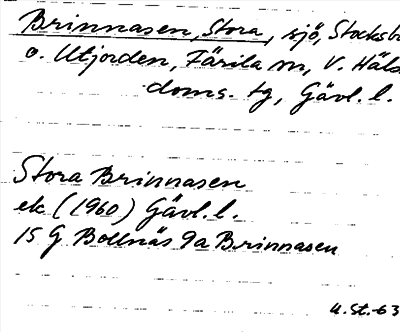 Brinnasen, Stora, sjö, Stocksb
o. Utjorden, Färila sn, V. Häls
doms. tg, Gävl. l.
Stora Brinnasen
ek (1960) Gävl. l.
15 G Bollnäs 9a Brinnasen
U.St.-63